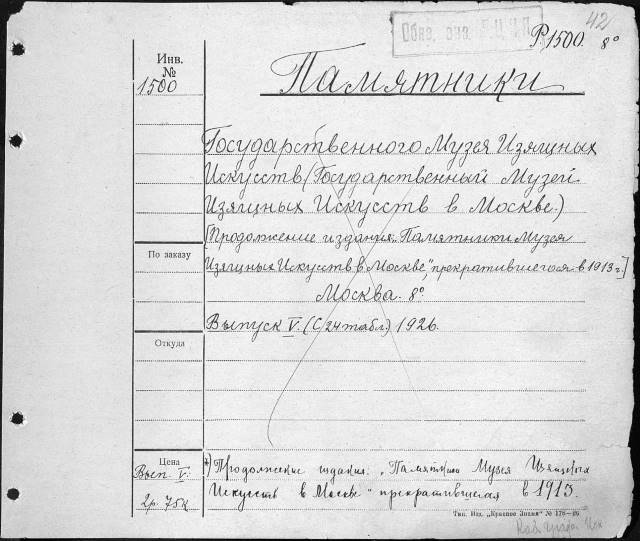 42
P.1500. 8°
Инв.
№
1500
Памятники
Государственного Музея Изящных
Искусств (Государственный Музей
Изящных Искусств в Москве.)
[Продолжение издания „Памятники Музея
Изящных Искусств в Москве", прекратившегося в 1913 г.]
По заказу
Москва. 8°.
Выпуск V. (С 24 табл.) 1926.
Откуда
Цена
Вып. V.
2р. 75к.
*) Продолжение издания: „Памятники Музея Изящных
Искусств в Москве" прекратившегося в 1913.
Тип. Изд. „Красное Знамя" № 176—26